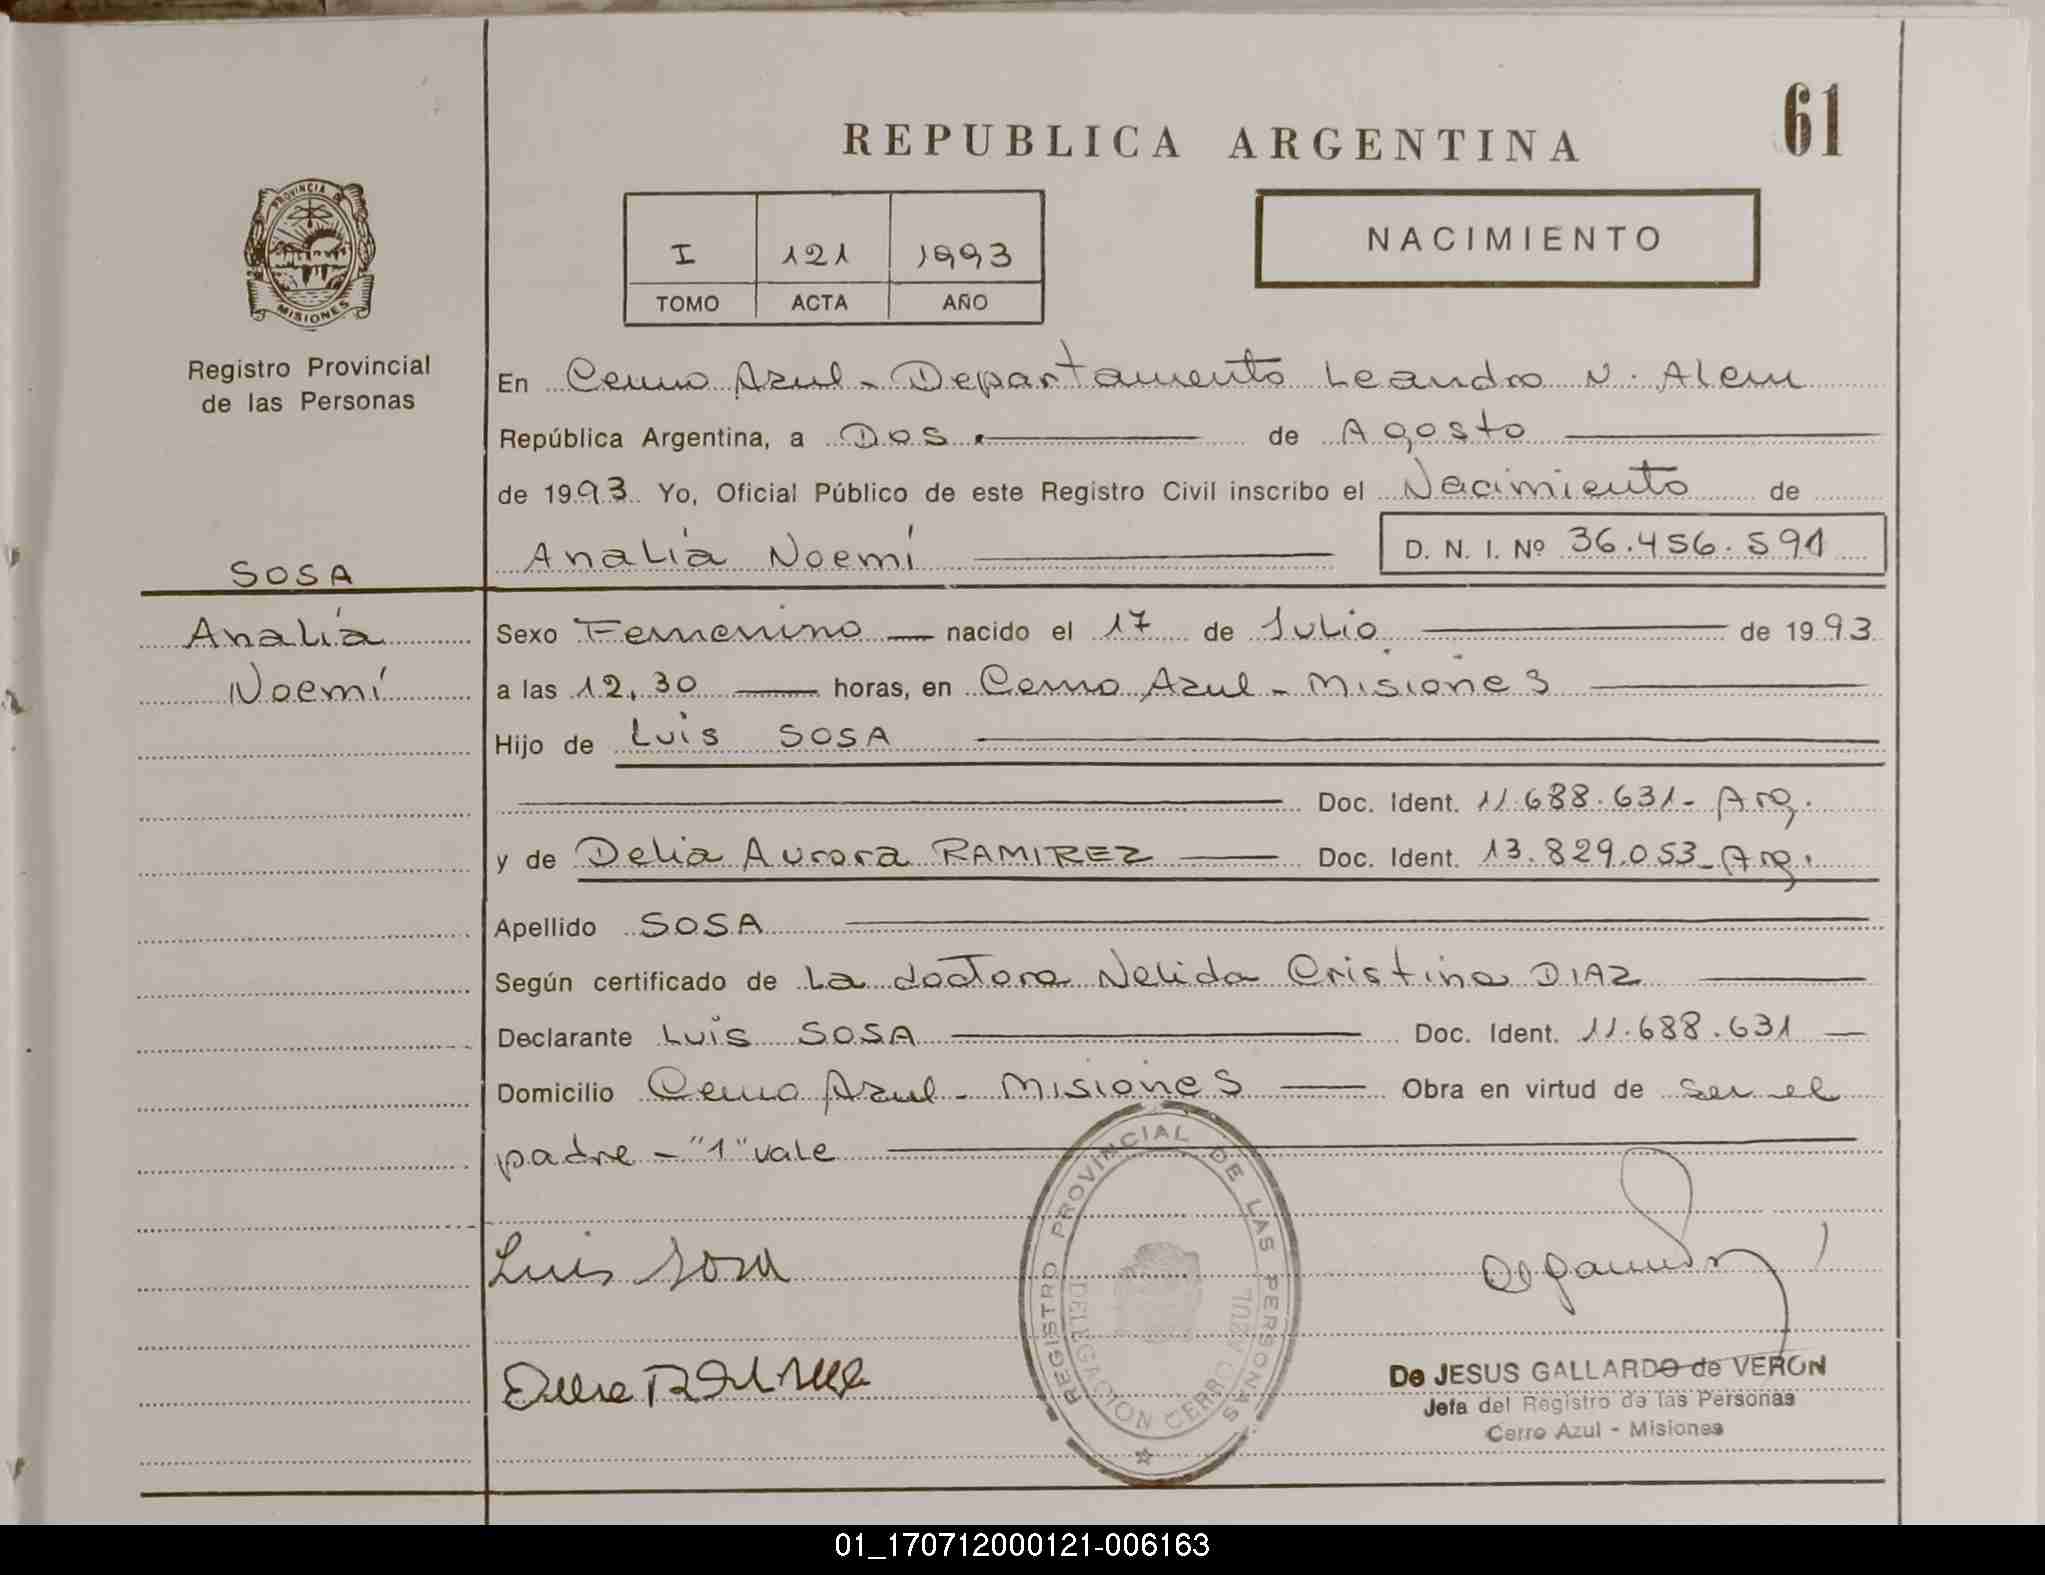 61
REPUBLICA ARGENTINA
PROVINCIA DE
MISIONES
Registro Provincial
de las Personas
I 121 1993
TOMO ACTA AÑO
NACIMIENTO
En Cerro Azul - Departamento Leandro N. Alem
República Argentina, a Dos.- de Agosto
de 1993 Yo, Oficial Público de este Registro Civil inscribo el Nacimiento de
Analía Noemí D. N. I. Nº 36.456.591
SOSA
Analía
Noemí
Sexo Femenino nacido el 17 de Julio de 1993
a las 12,30 horas, en Cerro Azul - Misiones
Hijo de Luis SOSA
Doc. Ident. 11.688.631- Arg.
y de Delia Aurora RAMIREZ Doc. Ident. 13.829.053- Arg.
Apellido SOSA
Según certificado de La doctora Nelida Cristina DIAZ
Declarante Luis SOSA Doc. Ident. 11.688.631
Domicilio Cerro Azul - Misiones Obra en virtud de ser el
padre - "1" vale
Luis Sosa
REGISTRO PROVINCIAL DE LAS PERSONAS
DELEGACION CERRO AZUL
De JESUS GALLARDO de VERON
Jefa del Registro de las Personas
Cerro Azul - Misiones
01_170712000121-006163